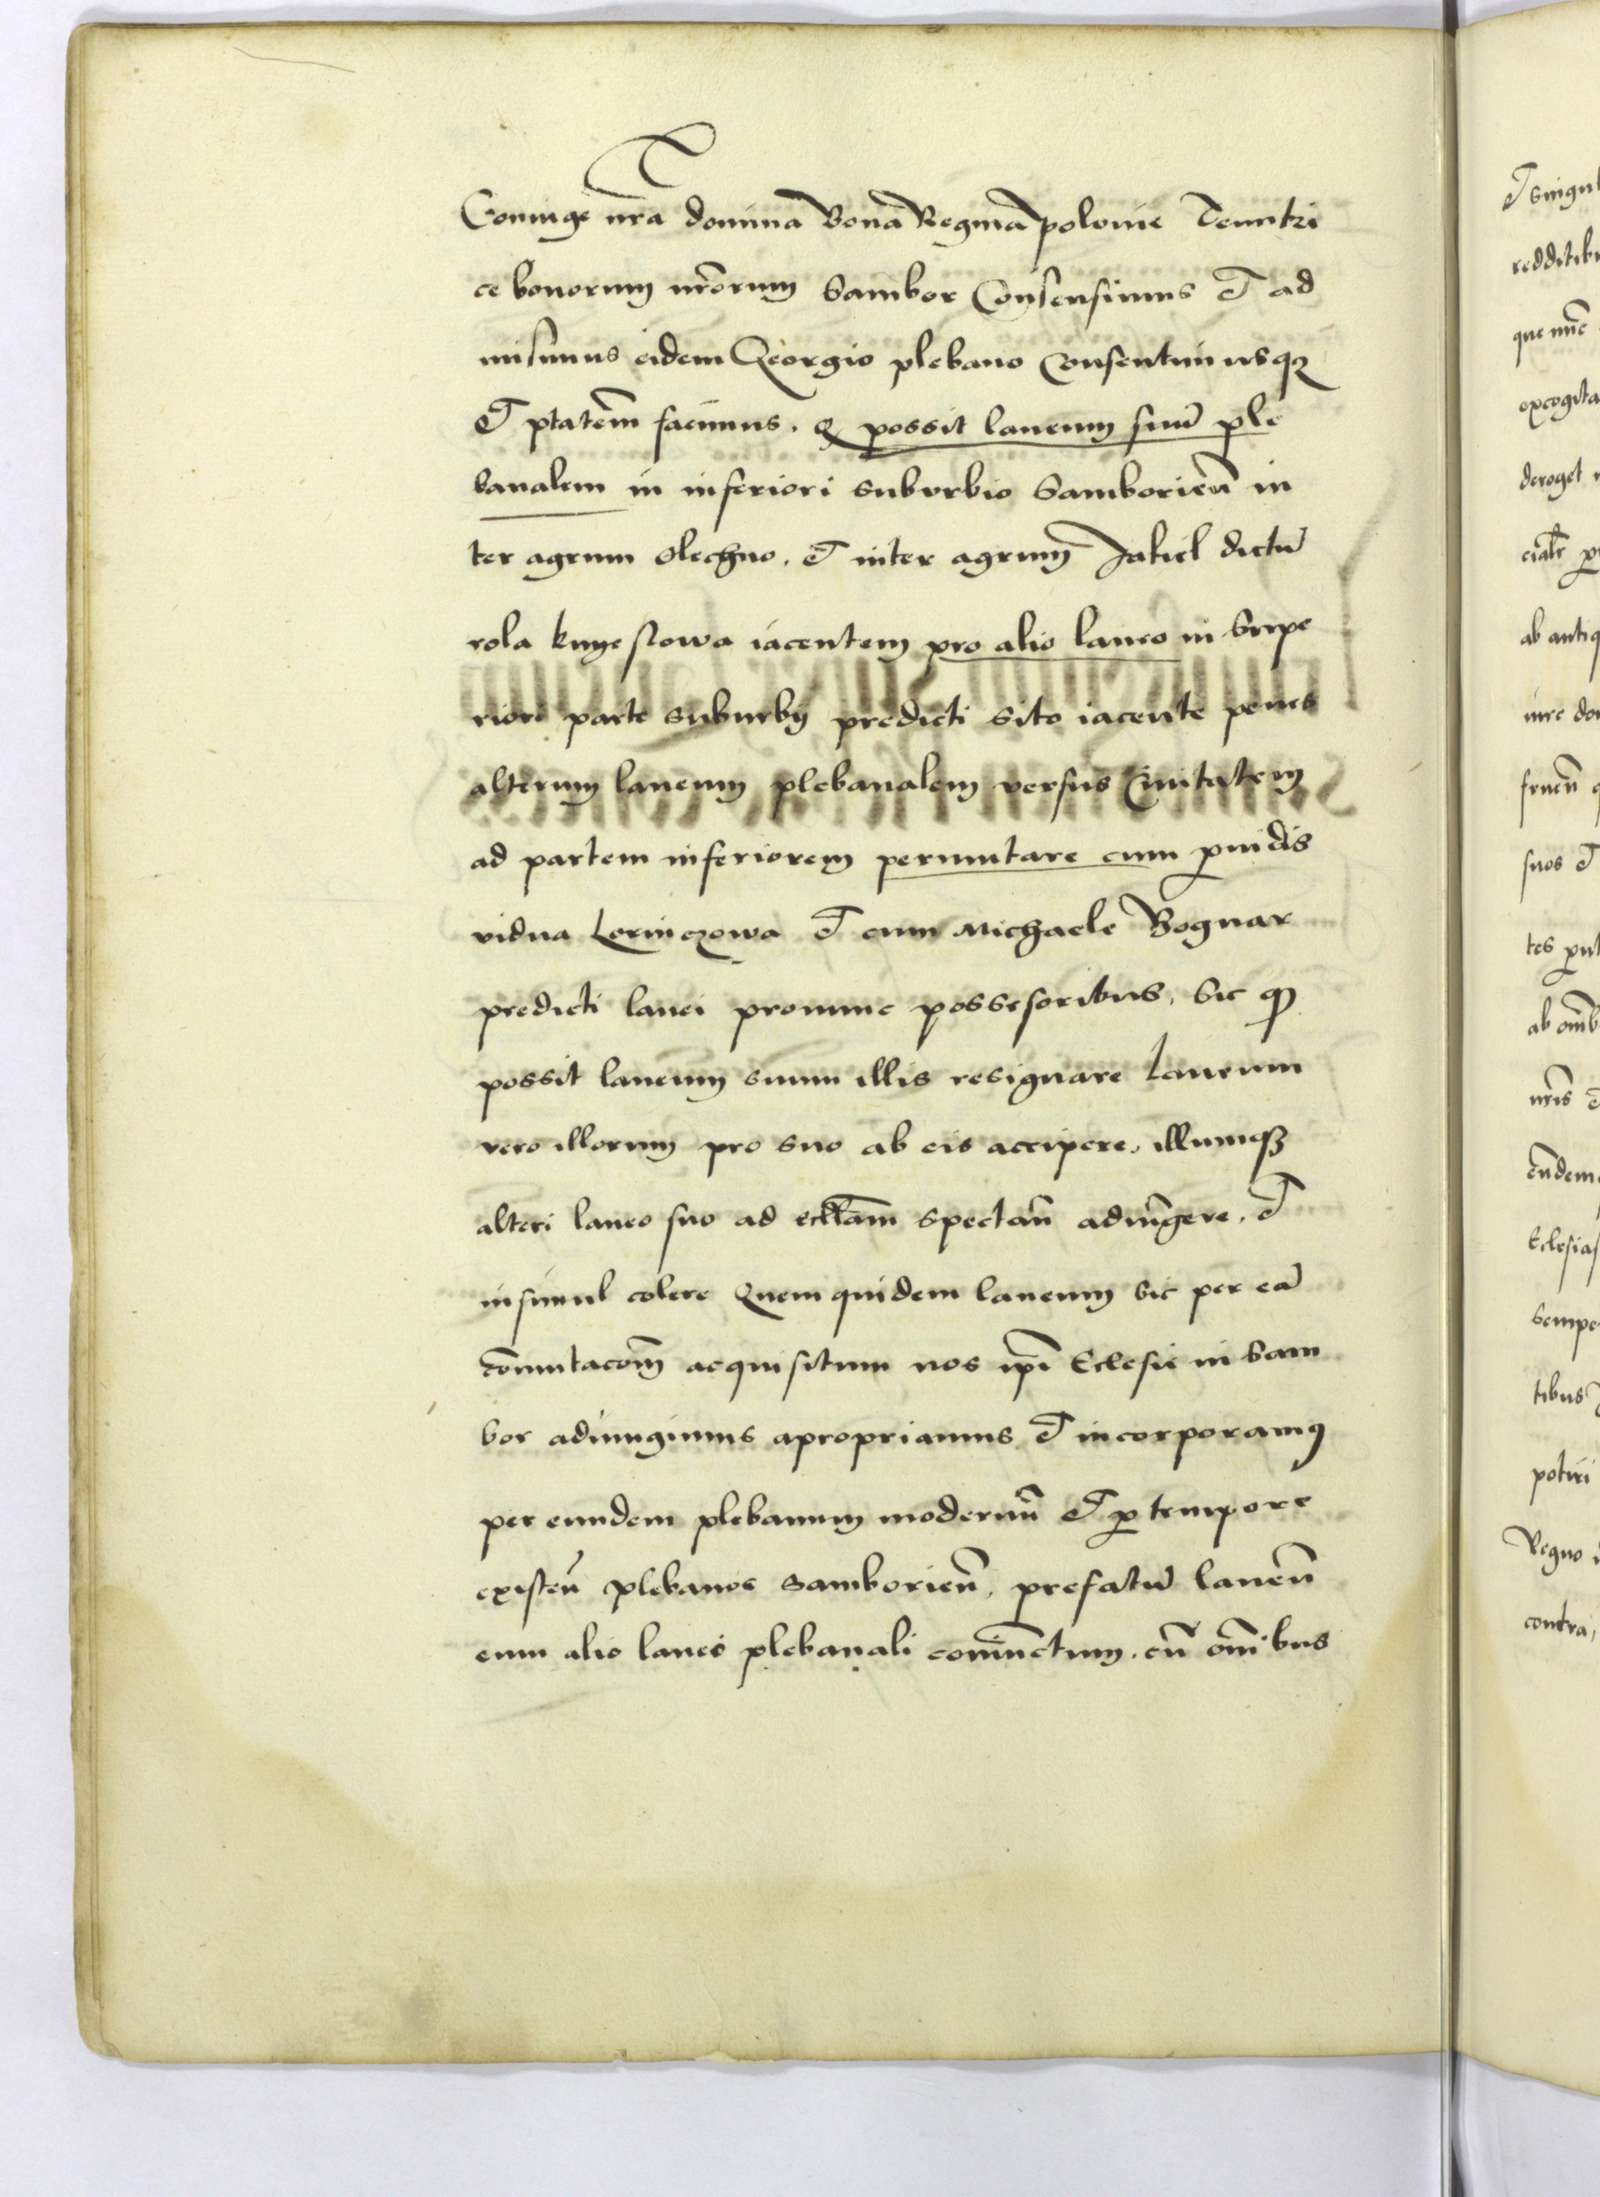 Coniuge nra domina Bona Regina polonie Tenutri
ce bonorum nrorum Sambor Consensimus et ad
misimus eidem Georgio plebano Consentimusq
et ptatem facimus. q possit laneum suu ple
banalem in inferiori suburbio Samborien in
ter agrum Olechno, et inter agrum Jakiel dictu
rola knyeskowa iacentem pro alio laneo in Supe
riori parte suburbij predicti sito iacente penes
alterum laneum plebanalem versus Ciuitatem
ad partem inferiorem permutare cum puidis
vidua Lorinczowa et cum Michaele Bognar
predicti lanei pronunc possesoribus, Sic q
possit laneum suum illis resignare Laneum
vero illorum pro suo ab eis accipere, illumq
alteri laneo suo ad eccliam spectan adiungere, et
insimul colere Quem quidem laneum sic per ea
comutacom acquisitum nos ipi Eclesie in Sam
bor adiungimus apropriamus et incorporamus
per eundem plebanum modernu et p tempore
existen plebanos samborien, prefatu laneu
cum alio laneo plebanali coniunctum, cu omibus
et singul
redditib
que nunc
excogita
deroget
ab antiq
iure do
suos et
ab omb
nris
eundem
Eclesias
Sempe
tibus
potiri
Regno
contra